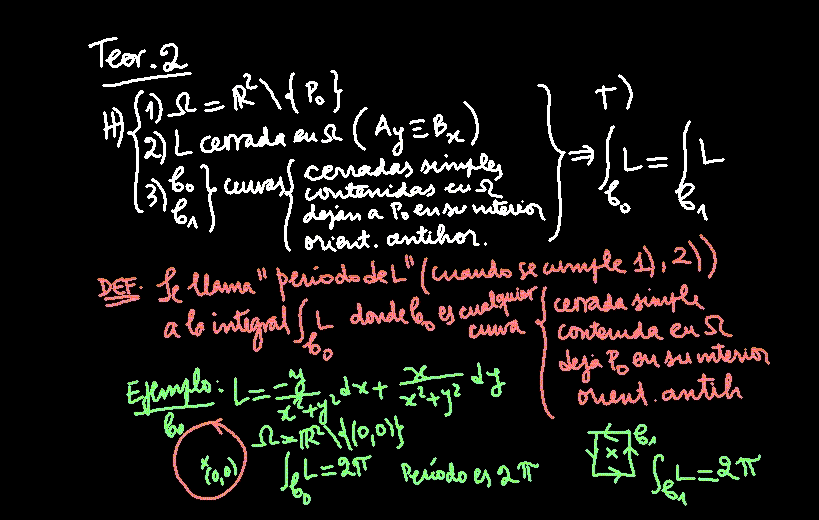 Teor. 2
H) 1) Ω = ℝ² \ {P₀}
2) L cerrada en Ω (Ay ≡ Bx)
3) b₀ b₁ } curvas { cerradas simples
contenidas en Ω
dejan a P₀ en su interior
orient. antihor.
T)
⇒ ∫_b₀ L = ∫_b₁ L
DEF. Se llama "periodo de L" (cuando se cumple 1), 2))
a la integral ∫_b₀ L donde b₀ es cualquier curva { cerrada simple
contenida en Ω
deja P₀ en su interior
orient. antih
Ejemplo: L = -y/(x²+y²) dx + x/(x²+y²) dy
b₀
Ω = ℝ² \ {(0,0)}
x (0,0)
∫_b₀ L = 2π Período es 2π
x b₁
∫_b₁ L = 2π